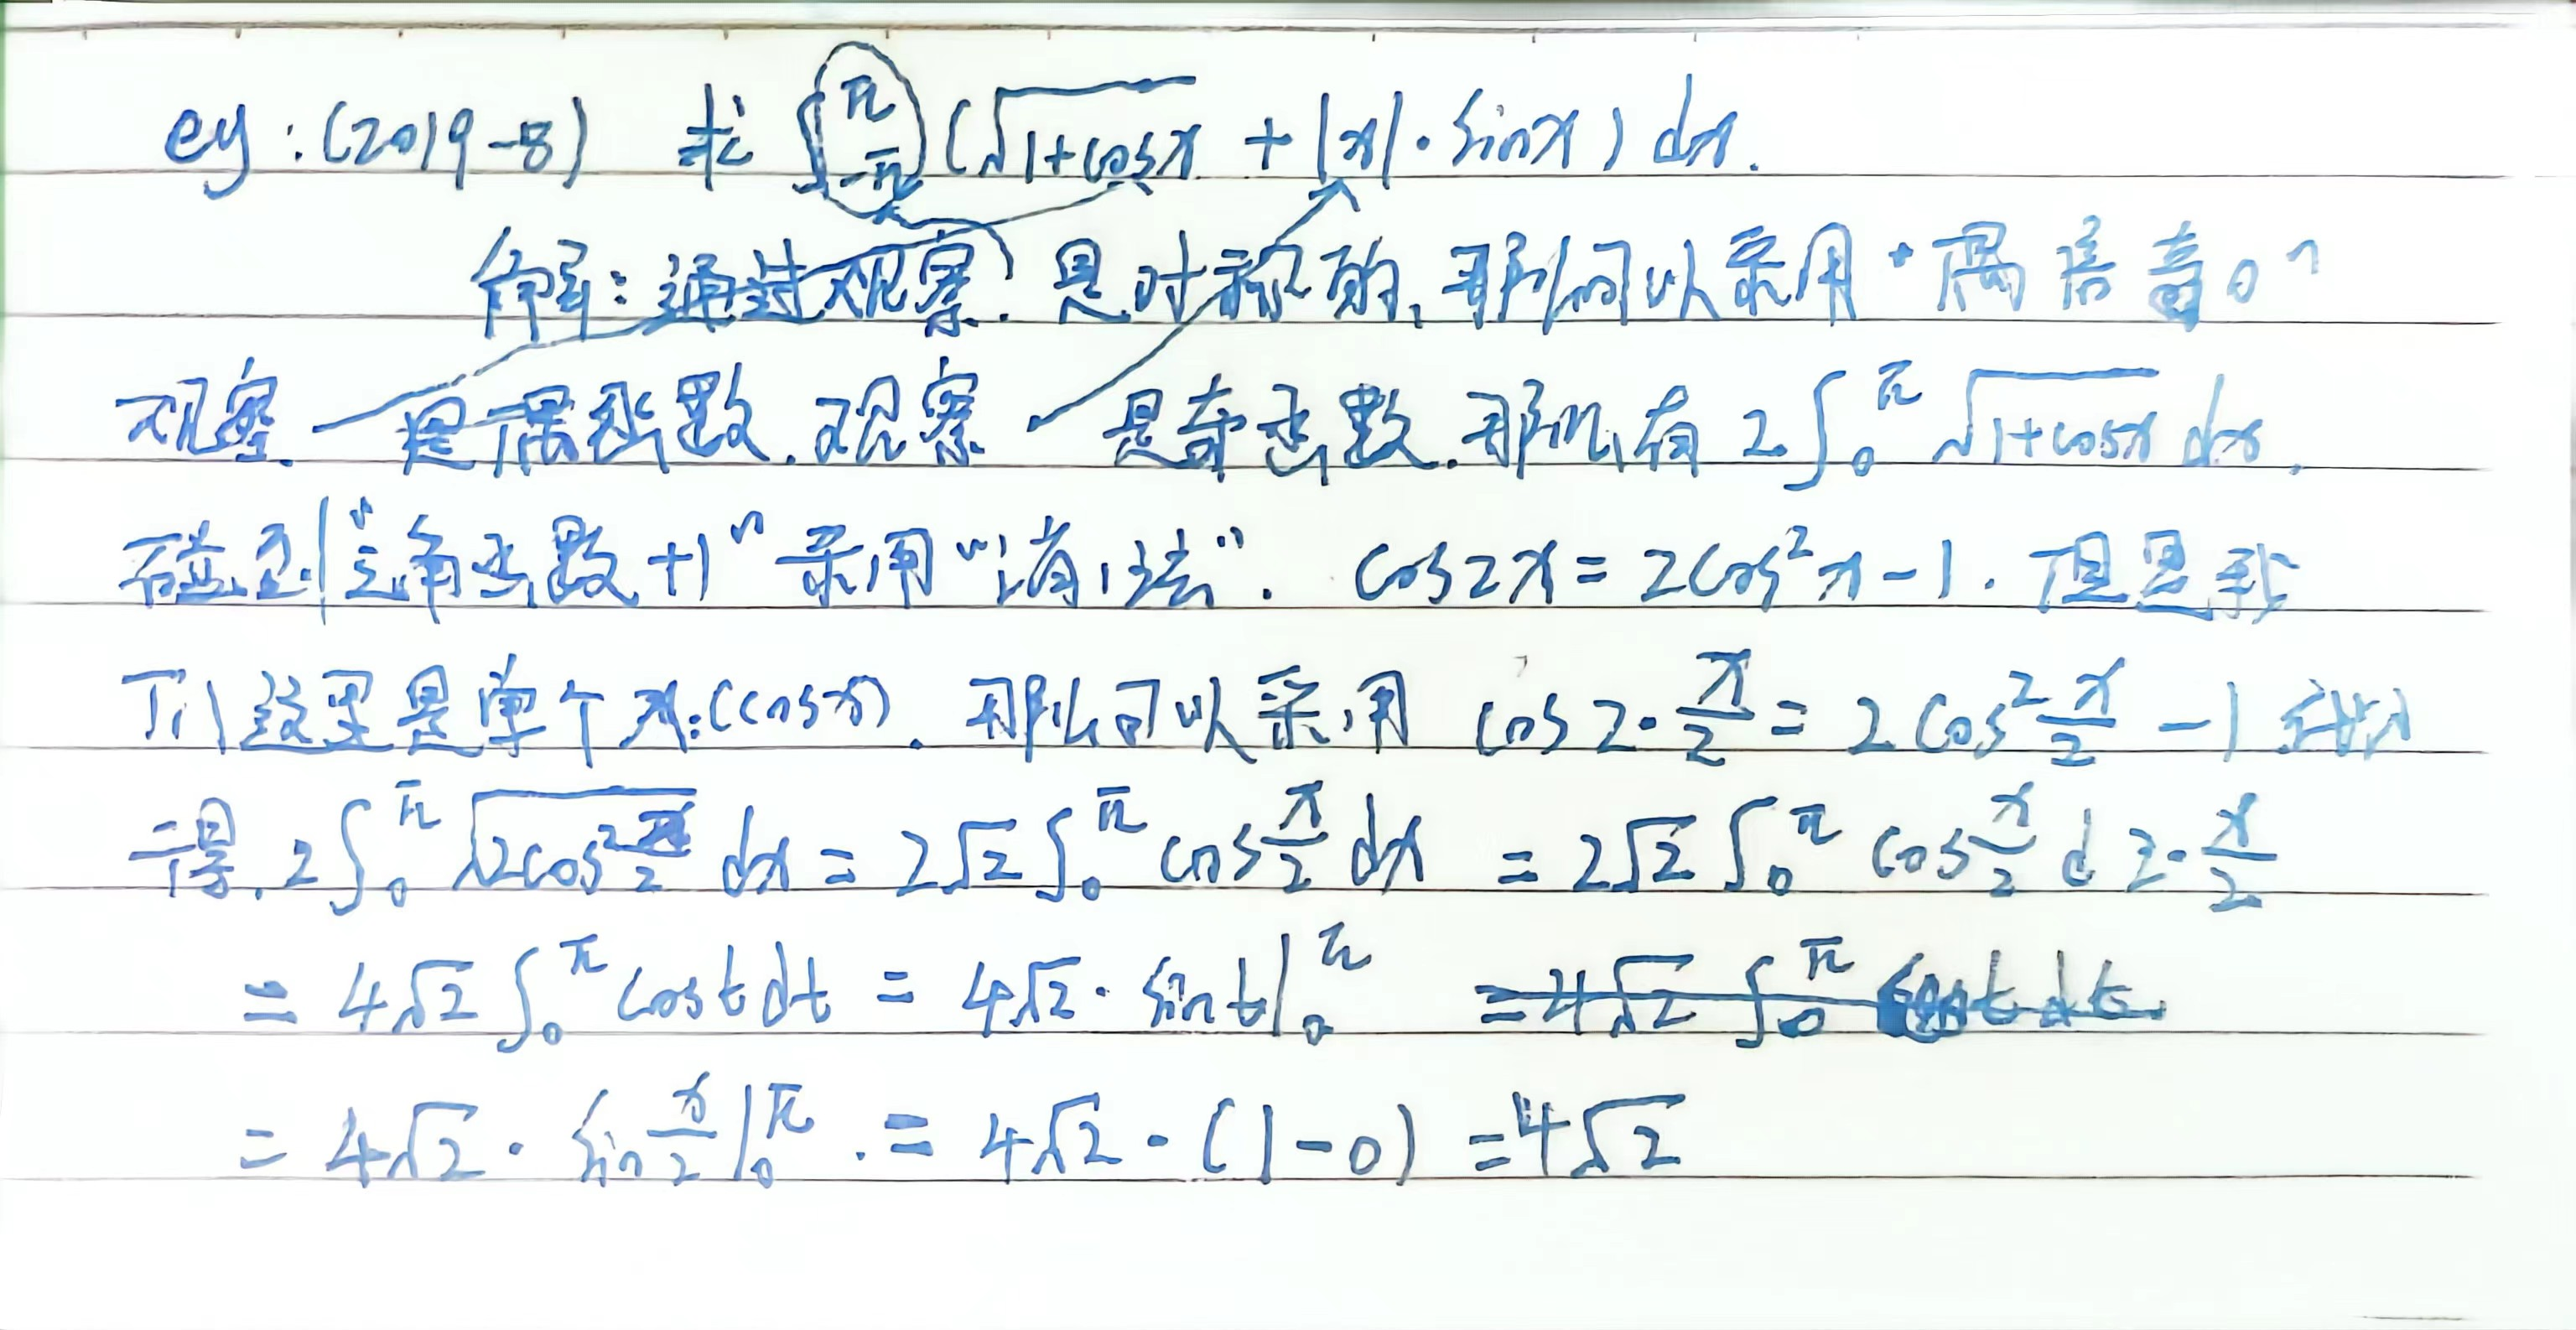 eg:(2019-8) 求 ∫_{-π}^{π} (√(1+cosx) + |x|·sinx) dx.
解:通过观察. 是对称的,那么可以采用"偶倍奇0"
观察 是偶函数.观察 是奇函数.那么有 2∫_0^π √(1+cosx) dx.
碰到"三角函数+1"采用"消1法". cos2x=2cos²x-1.但是我
们这里是单个x:(cosx).那么可以采用 cos2·x/2=2cos²x/2-1 代入
得.2∫_0^π √(2cos²x/2) dx=2√2∫_0^π cos x/2 dx =2√2∫_0^π cos x/2 d2·x/2
=4√2∫_0^π cost dt=4√2·sint|_0^π =4√2∫_0^π cost dt.
=4√2·sin x/2|_0^π.=4√2·(1-0)=4√2